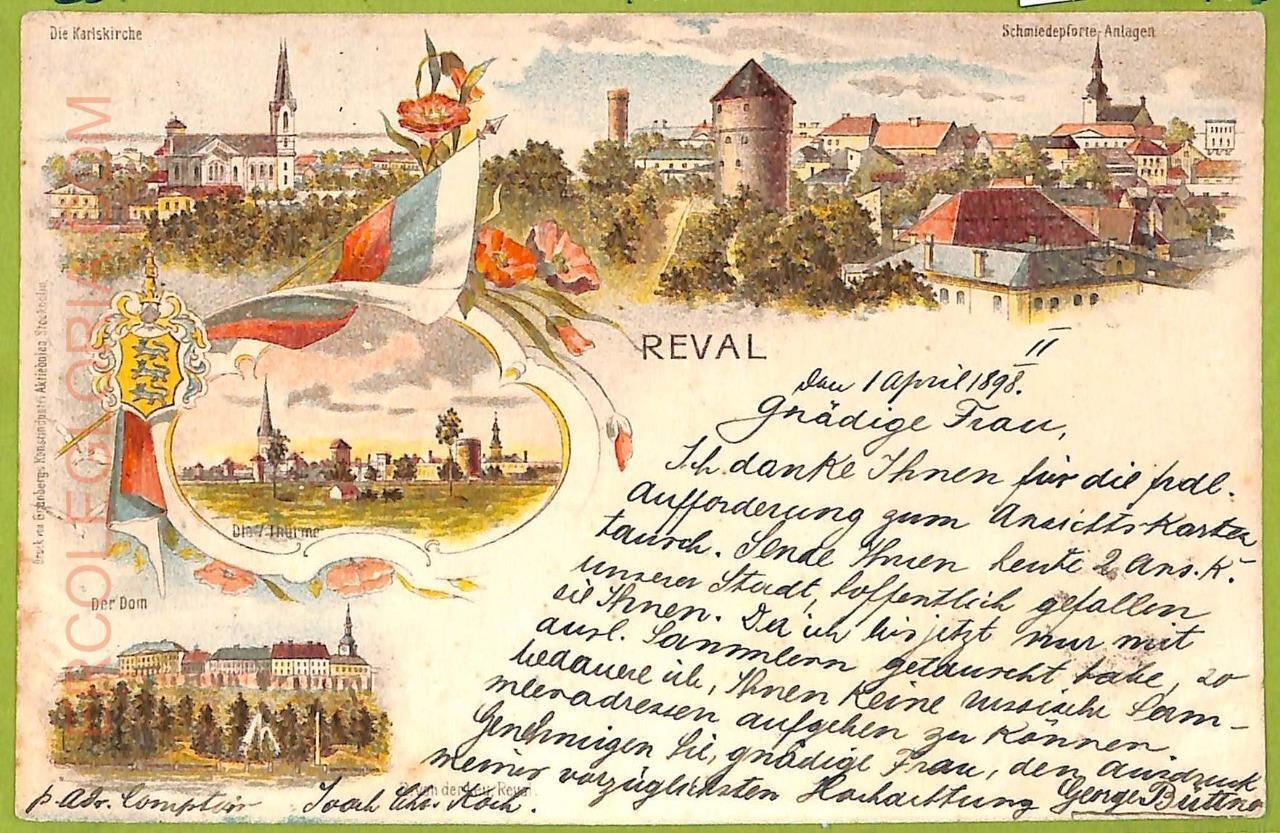 Die Karlskirche
Schmiedepforte-Anlagen
REVAL
II
Den 1 April 1898.
Gnädige Frau,
Ich danke Ihnen für die frdl.
Aufforderung zum Ansichtskarten
tausch. Sende Ihnen heute 2 Ans. K.
unserer Stadt, hoffentlich gefallen
sie Ihnen. Da ich bis jetzt nur mit
ausl. Sammlern getauscht habe, so
bedauere ich, Ihnen keine russische Sam-
mleradressen aufgeben zu können
Genehmigen Sie, gnädige Frau, den Ausdruck
meiner vorzüglichsten Hochachtung George Büttner
Die 7 Thürme
Der Dom
p. Adr. Comptoir Joach. Chr. Koch.
Reval
Druck von Grönbergs Konstindustri Aktiebolag Stockholm
COLEGLOBIA.COM